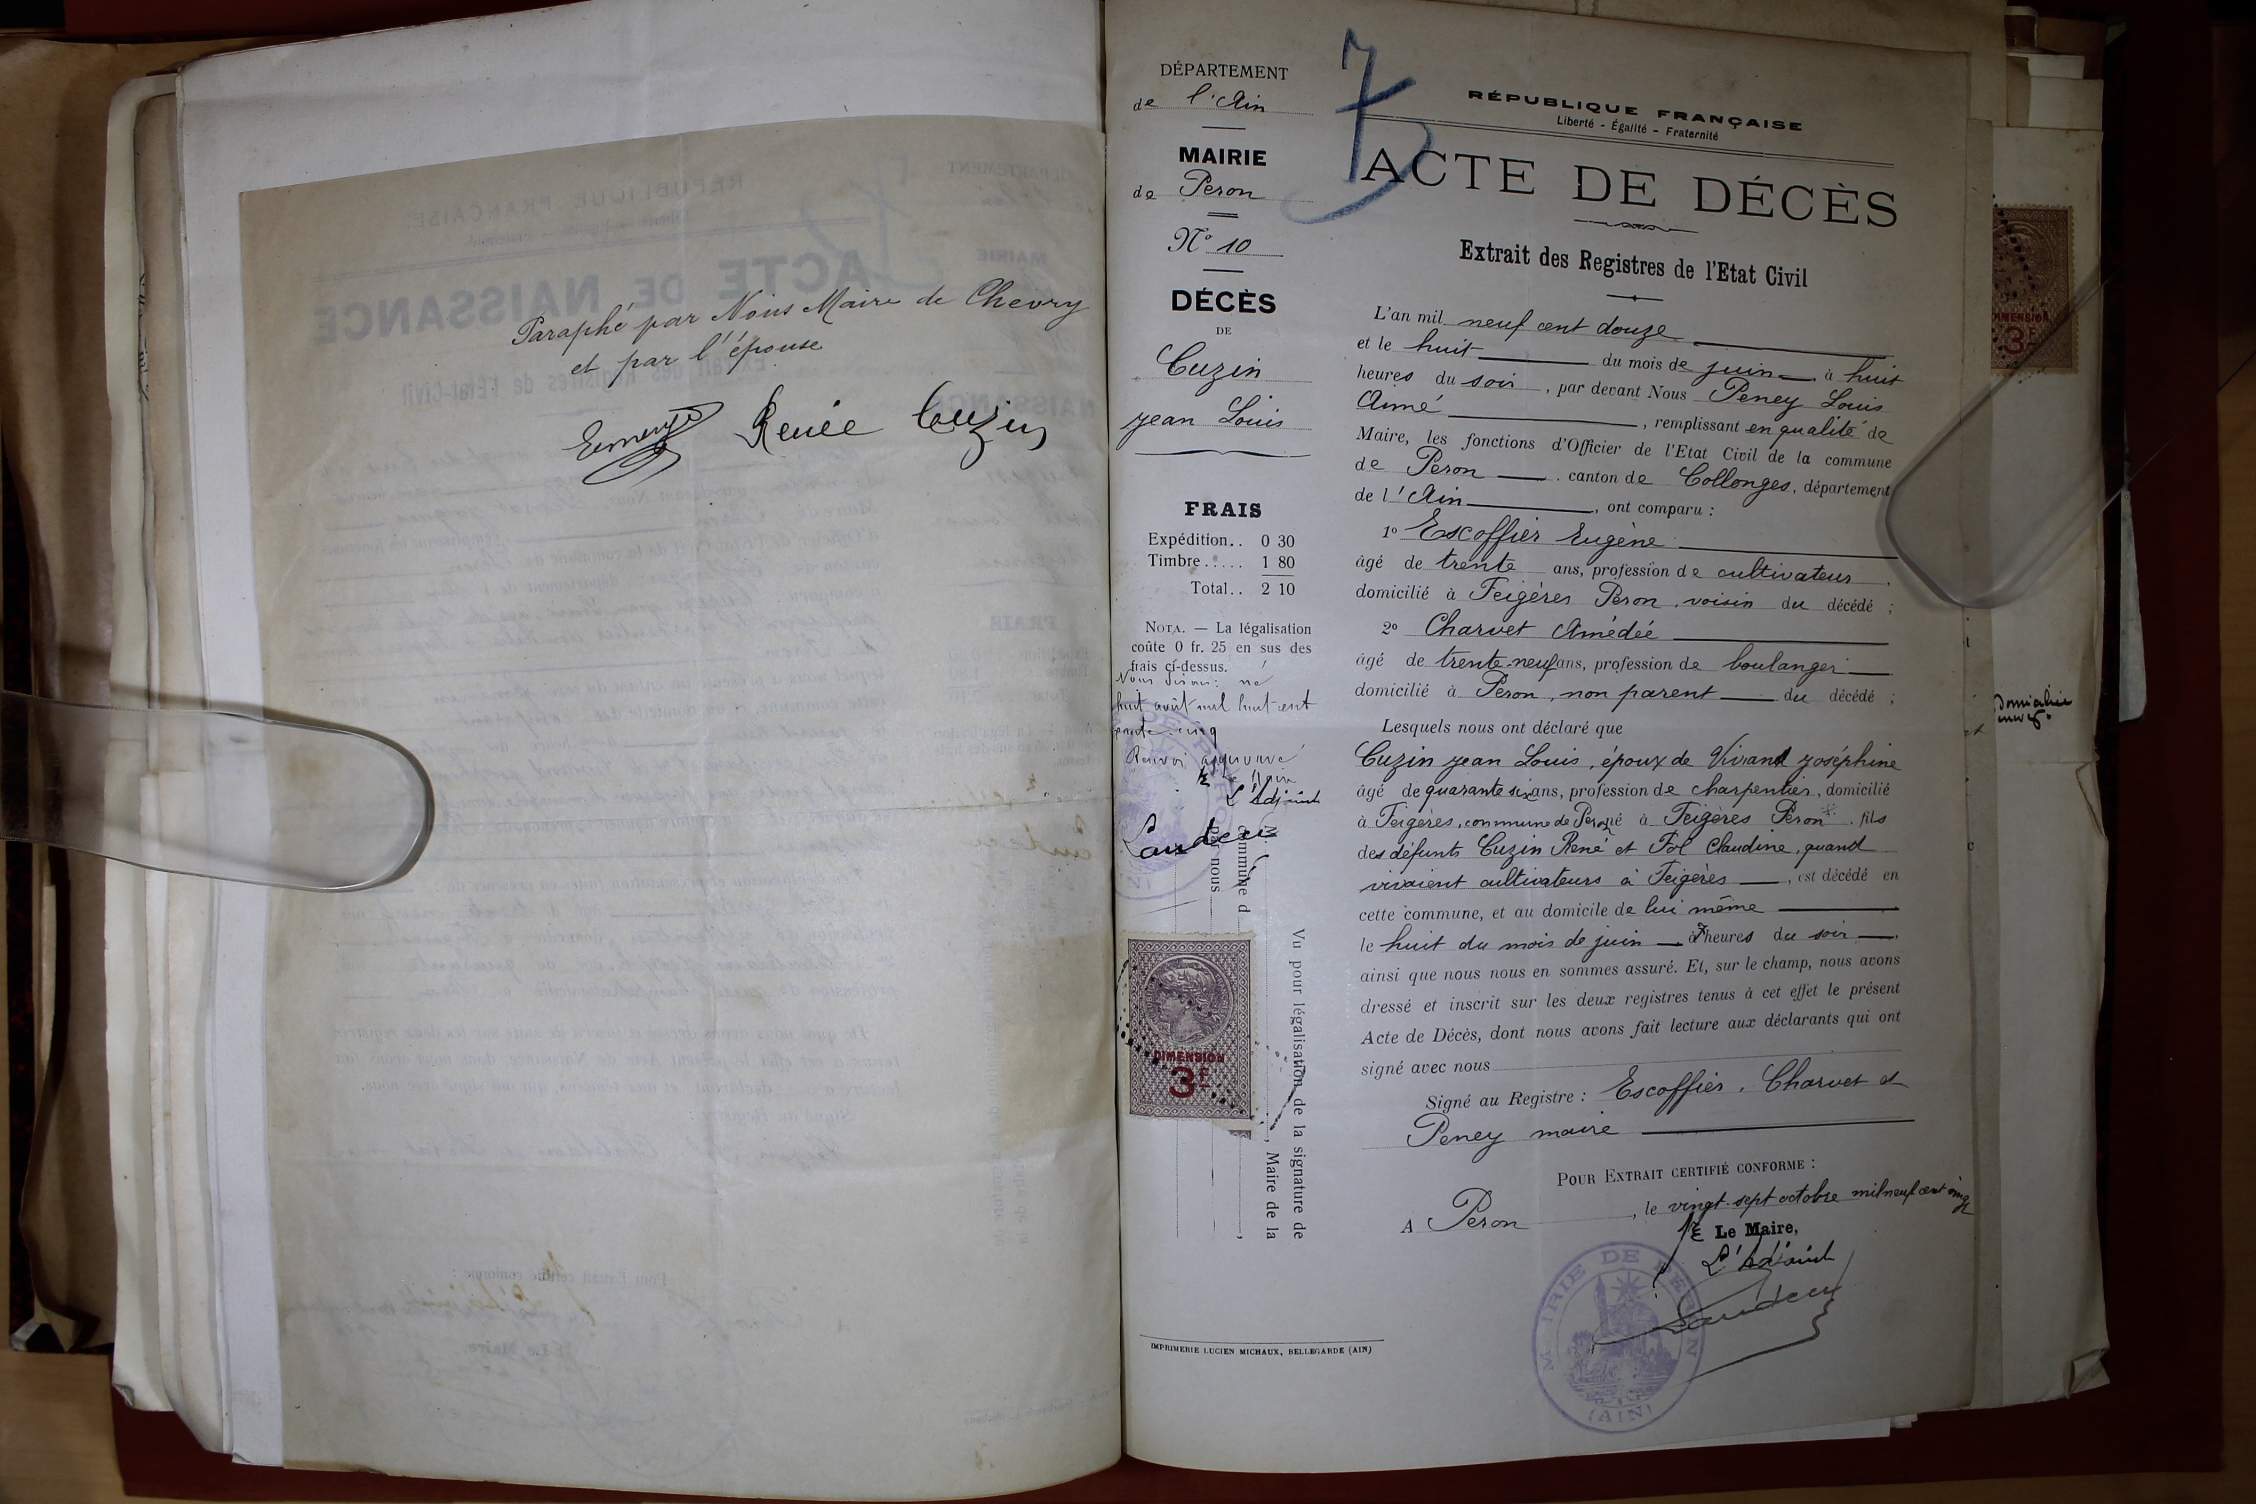 Paraphé par Nous Maire de Chevry
et par l'épouse
Renée Cuzin
DÉPARTEMENT
de l'Ain
MAIRIE
de Peron
N° 10
DÉCÈS
DE
Cuzin
Jean Louis
FRAIS
Expédition.. 0 30
Timbre..... 1 80
Total.. 2 10
NOTA. — La légalisation
coûte 0 fr. 25 en sus des
frais ci-dessus.
Nous disons: né
huit août mil huit cent
Renvoi approuvé
L'Adjoint
Vu pour légalisation de la signature de
M.
, Maire de la
commune d
par nous
DIMENSION
3F
IMPRIMERIE LUCIEN MICHAUX, BELLEGARDE (AIN)
RÉPUBLIQUE FRANÇAISE
Liberté - Égalité - Fraternité
ACTE DE DÉCÈS
Extrait des Registres de l'Etat Civil
L'an mil neuf cent douze
et le huit du mois de juin à huit
heures du soir, par devant Nous Peney Louis
Aimé, remplissant en qualité de
Maire, les fonctions d'Officier de l'Etat Civil de la commune
de Peron, canton de Collonges, département
de l'Ain, ont comparu :
1° Escoffier Eugène
âgé de trente ans, profession de cultivateur,
domicilié à Feigères Péron, voisin du décédé ;
2° Charvet Amédée
âgé de trente-neuf ans, profession de boulanger
domicilié à Péron, non parent du décédé ;
Lesquels nous ont déclaré que
Cuzin Jean Louis, époux de Viviand Joséphine
âgé de quarante six ans, profession de charpentier, domicilié
à Feigères, commune de Peron né à Feigères Péron*. fils
des défunts Cuzin René et Fol Claudine, quand
vivaient cultivateurs à Feigères, est décédé en
cette commune, et au domicile de lui même
le huit du mois de juin à 7 heures du soir,
ainsi que nous nous en sommes assuré. Et, sur le champ, nous avons
dressé et inscrit sur les deux registres tenus à cet effet le présent
Acte de Décès, dont nous avons fait lecture aux déclarants qui ont
signé avec nous
Signé au Registre : Escoffier, Charvet et
Peney maire
POUR EXTRAIT CERTIFIÉ CONFORME :
A Péron, le vingt-sept octobre mil neuf cent
Le Maire,
L'Adjoint
MAIRIE DE PERON
(AIN)
DIMENSION
3F